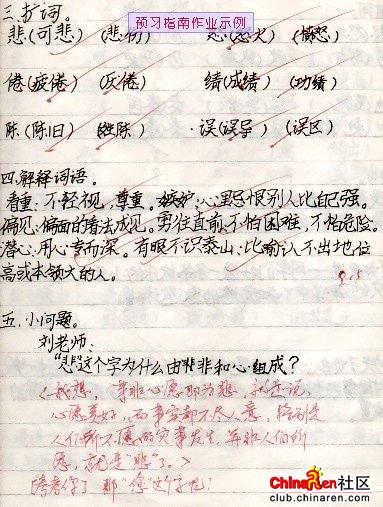 预习指南作业示例
三.扩词。
悲(可悲)(悲伤) 怒(怒火)(愤怒)
倦(疲倦)(厌倦) 绩(成绩)(功绩)
陈(陈旧)(姓陈) 误(误导)(误区)
四.解释词语。
看重:不轻视,尊重。嫉妒:心里忌恨别人比自己强。
偏见:偏面的看法成见。勇往直前:不怕困难,不怕危险。
潜心:用心专而深。有眼不识泰山:比喻认不出地位
高或本领大的人。
9.5
五.小问题。
刘老师:
“悲”这个字为什么由非和心组成?
<我想,并非心愿即为悲,就是说,
心愿美好,而事实却不尽人意,特别是
人们所不愿的灾事发生,并非人们所
愿,就是“悲”了。>
考考你了 那“您”这个字呢?
ChinaRen社区
club.chinaren.com